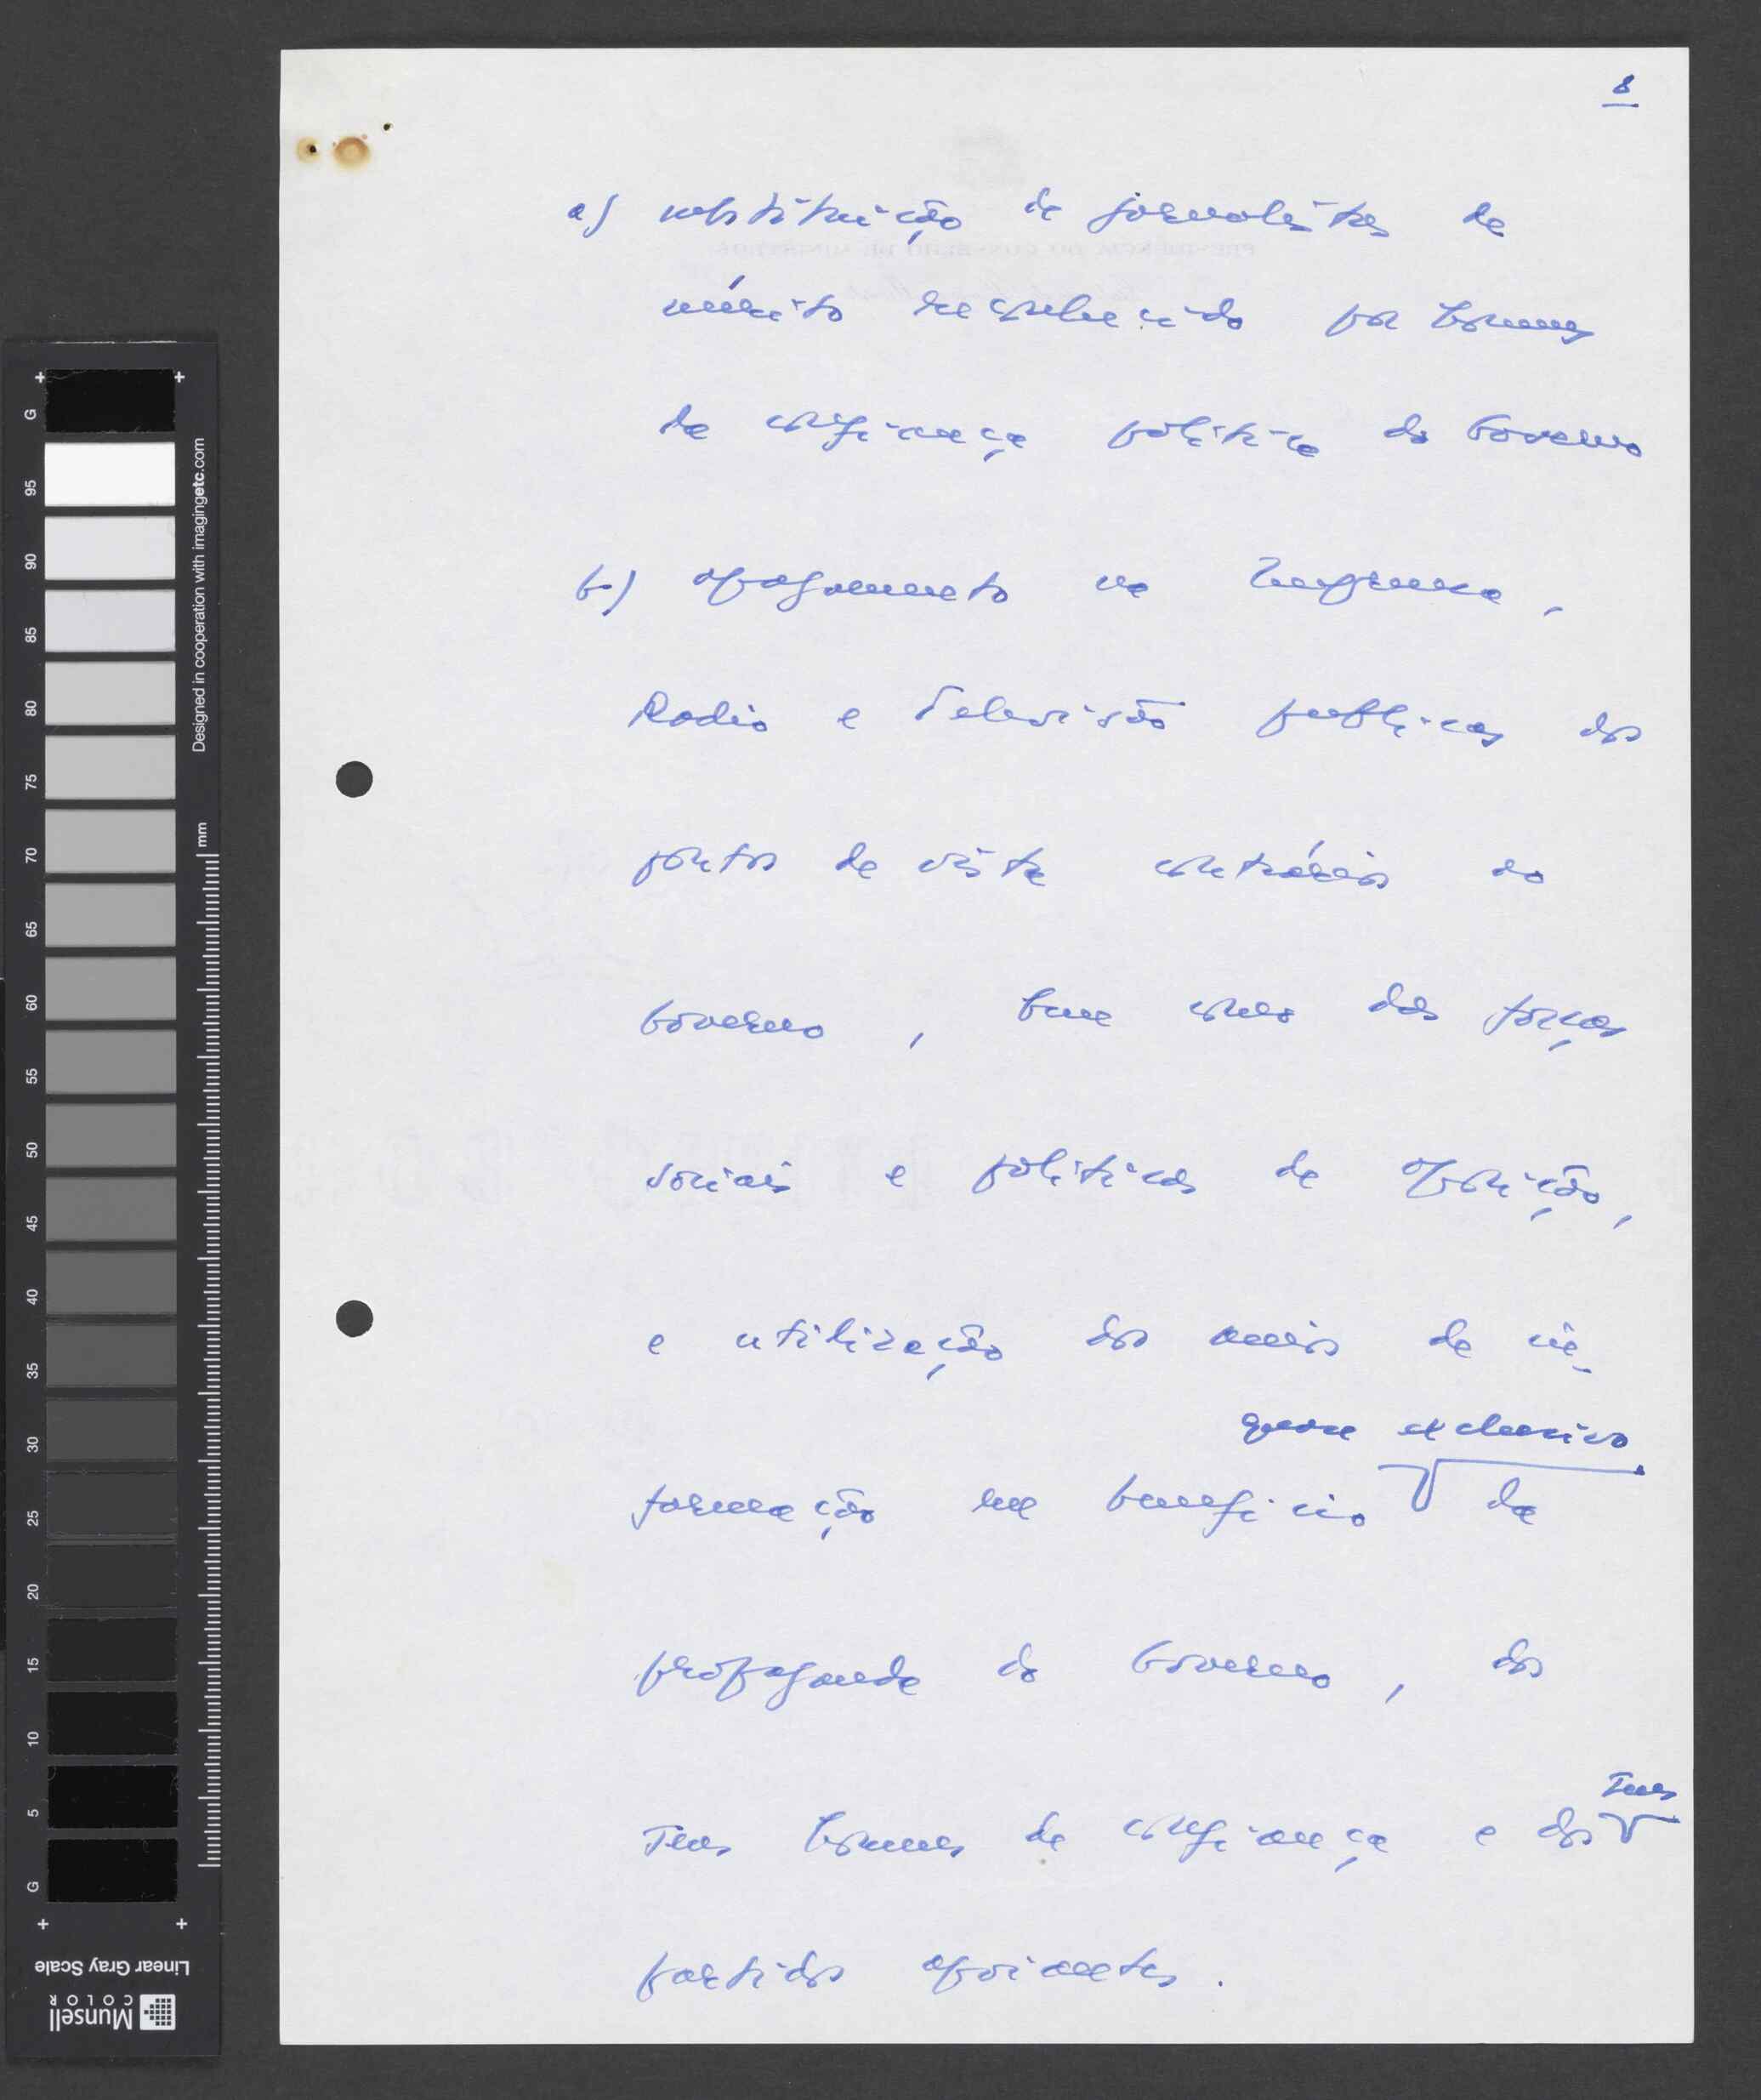 8
a) substituição de jornalistas de
mérito reconhecido por homens
de confiança política do Governo
b) apagamento na Imprensa,
Rádio e Televisão publicas dos
pontos de vista contrários ao
Governo, bem como das forças
sociais e politicas de oposição,
e utilização dos meios de in-
quase exclusivo
formação em beneficio da
propaganda do Governo, dos
seus homens de confiança e dos
seus
partidos apoiantes.
G
95
90
85
80
75
70
65
60
55
50
45
40
35
30
25
20
15
10
5
G
Designed in cooperation with imagingetc.com
mm
Linear Gray Scale
Munsell
COLOR